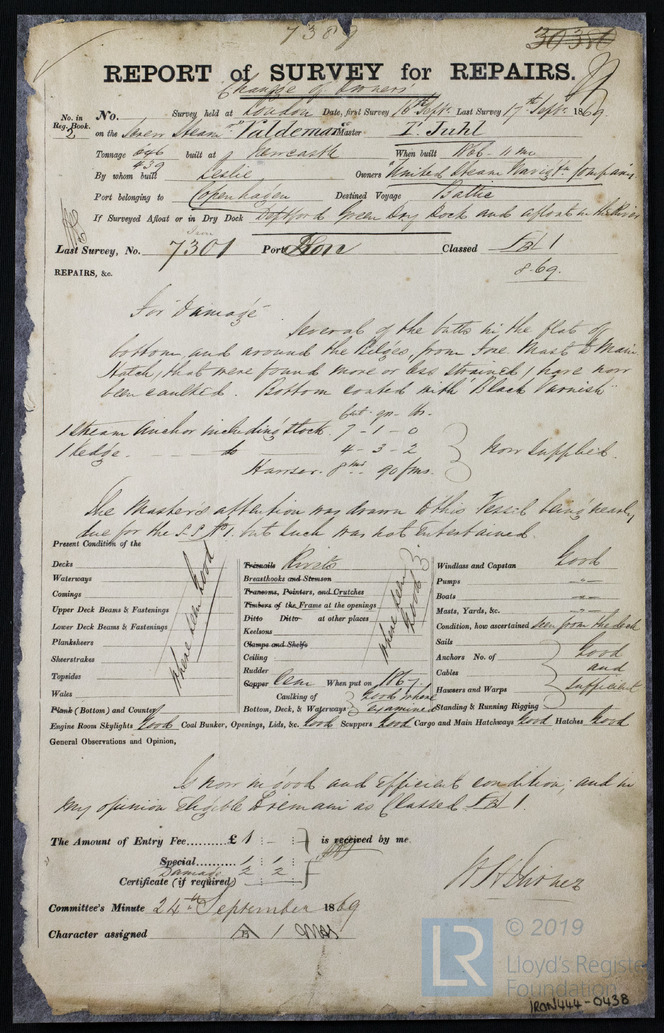 7389
30380
REPORT of SURVEY for REPAIRS.
Change of Owners
No. in Reg. Book. 2
No. Survey held at London Date, first Survey 10th Sept. Last Survey 17th Septr. 1869
on the Screw Steamr "Valdemar" Master T. Juhl
Tonnage 646 439 built at Newcastle When built 1866 - 11 mo
By whom built Leslie Owners "United Steam Navign. Company"
Port belonging to Copenhagen Destined Voyage Baltic
If Surveyed Afloat or in Dry Dock Deptford Green Dry Dock and afloat in the River
Last Survey, No. 7301 Port Lon Classed 1
8.69.
REPAIRS, &c.
For Damage
Several of the butts in the flat of
bottom and around the Bilges, from Fore Mast to Main
Hatch, that were found more or less strained, have now
been caulked. Bottom coated with Black Varnish
Cwt. qrs. lbs.
1 Stream Anchor including stock. 7 - 1 - 0
1 Kedge do 4 - 3 - 2
now supplied.
Hawser. 90 fms.
The Master's attention was drawn to this Vessel being nearly
due for the S.S. No 1. but such was not entertained.
Present Condition of the
Decks
Waterways
Comings
Upper Deck Beams & Fastenings
Lower Deck Beams & Fastenings
Planksheers
Sheerstrakes
Topsides
Wales
Plank (Bottom) and Counter
where seen Good
Treenails Rivets
Breasthooks and Stemson
Transoms, Pointers, and Crutches
Timbers of the Frame at the openings
Ditto Ditto at other places
Keelsons
Clamps and Shelfs
Ceiling
Rudder
where seen Good
Copper Cem When put on 1867
Caulking of
Bottom, Deck, & Waterways Good where examined
Windlass and Capstan Good
Pumps "
Boats "
Masts, Yards, &c. "
Condition, how ascertained seen from the deck
Sails
Anchors No. of
Cables
Hawsers and Warps
Standing & Running Rigging
Good and sufficient
Engine Room Skylights Good Coal Bunker, Openings, Lids, &c. Good Scuppers Good Cargo and Main Hatchways Good Hatches Good
General Observations and Opinion,
Is now in good and efficient condition; and in
my opinion eligible to remain as Classed 1.
The Amount of Entry Fee......... £ 1 : - : is received by me
Special......... 1 : 1 :
Damage 2 2
Certificate (if required)
Committee's Minute 24th September 1869
Character assigned A 1
© 2019
LR
Lloyd's Register
Foundation
IRON444-0438